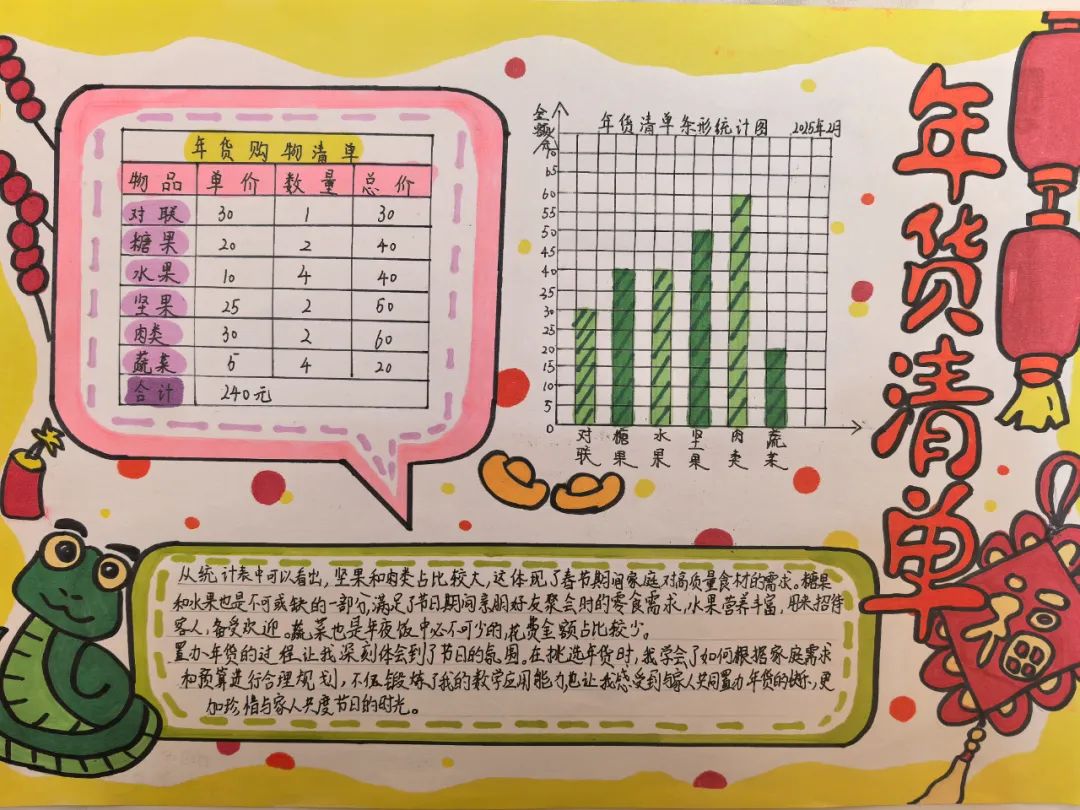 年货清单
年货购物清单
物品 单价 数量 总价
对联 30 1 30
糖果 20 2 40
水果 10 4 40
坚果 25 2 50
肉类 30 2 60
蔬菜 5 4 20
合计 240元
年货清单条形统计图 2025年2月
65
60
55
50
45
40
35
30
25
20
15
10
5
0
对联 糖果 水果 坚果 肉类 蔬菜
从统计表中可以看出,坚果和肉类占比较大,这体现了春节期间家庭对高质量食材的需求。糖果
和水果也是不可或缺的一部分,满足了节日期间亲朋好友聚会时的零食需求,水果营养丰富,用来招待
客人,备受欢迎。蔬菜也是年夜饭中必不可少的,花费金额占比较少。
置办年货的过程让我深刻体会到了节日的氛围。在挑选年货时,我学会了如何根据家庭需求
和预算进行合理规划,不仅锻炼了我的数学应用能力,也让我感受到与家人共同置办年货的快乐,更
加珍惜与家人共度节日的时光。
福